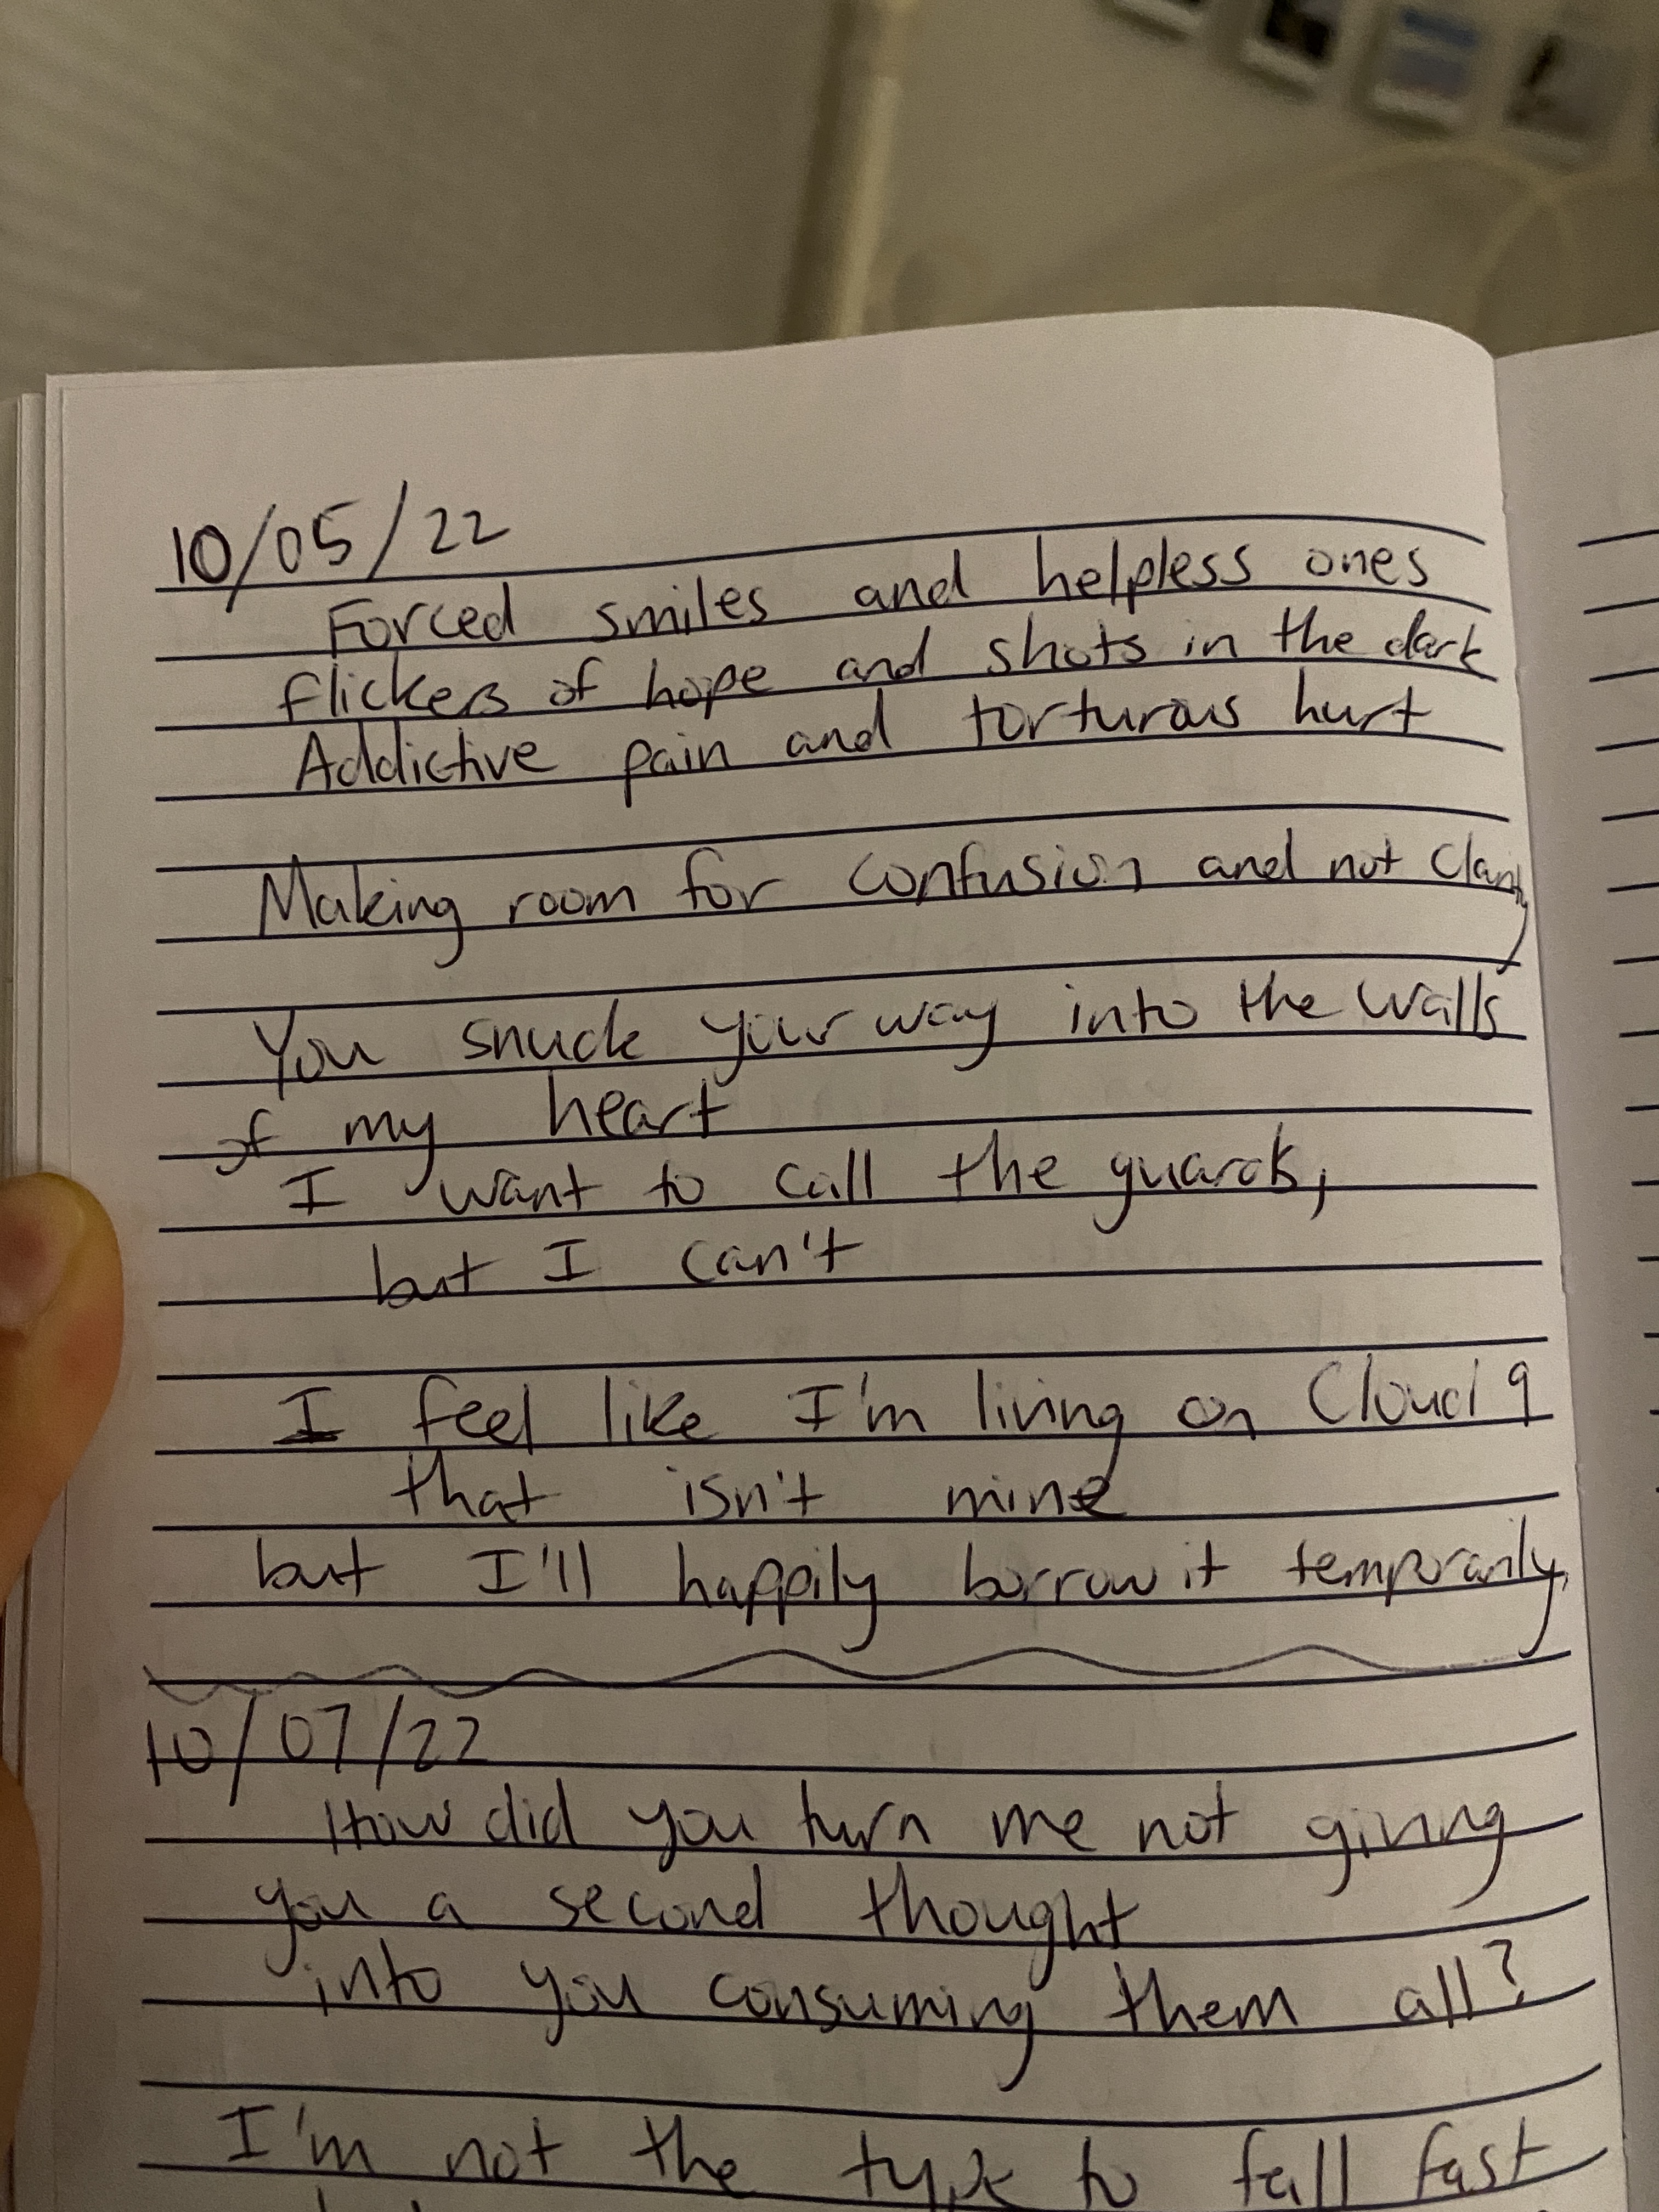 10/05/22
Forced smiles and helpless ones
flickers of hope and shots in the dark
Addictive pain and torturous hurt
Making room for confusion and not clarity
You snuck your way into the walls
of my heart
I want to call the guards,
but I can't
I feel like I'm living on Cloud 9
that isn't mine
but I'll happily borrow it temporarily,
10/07/22
How did you turn me not giving
you a second thought
into you consuming them all?
I'm not the type to fall fast